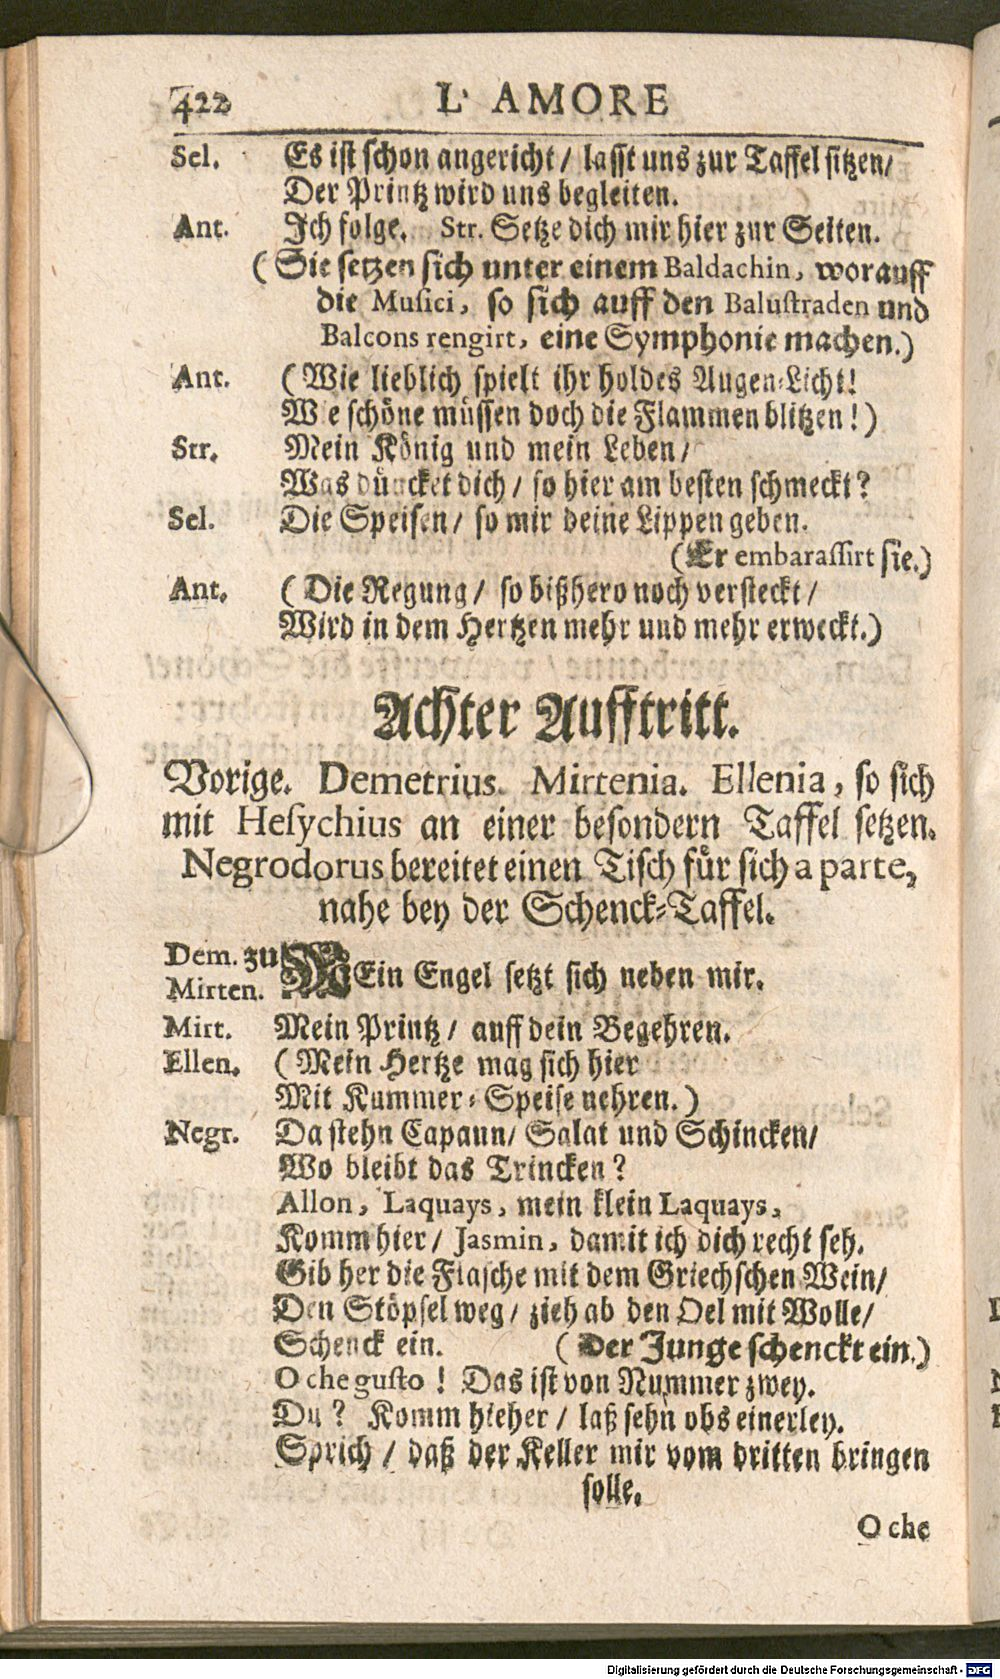 422 L' AMORE
Sel. Es ist schon angericht / lasst uns zur Taffel sitzen/
Der Printz wird uns begleiten.
Ant. Ich folge. Str. Setze dich mir hier zur Seiten.
(Sie setzen sich unter einem Baldachin, worauff
die Musici, so sich auff den Balustraden und
Balcons rengirt, eine Symphonie machen.)
Ant. (Wie lieblich spielt ihr holdes Augen-Licht!
Wie schöne müssen doch die Flammen blitzen!)
Str. Mein König und mein Leben/
Was düncket dich / so hier am besten schmeckt?
Sel. Die Speisen / so mir deine Lippen geben.
(Er embarassirt sie.)
Ant. (Die Regung / so bißhero noch versteckt /
Wird in dem Hertzen mehr und mehr erweckt.)
Achter Aufftritt.
Vorige. Demetrius. Mirtenia. Ellenia, so sich
mit Hesychius an einer besondern Taffel setzen.
Negrodorus bereitet einen Tisch für sich a parte,
nahe bey der Schenck-Taffel.
Dem. zu Mirten. MEin Engel setzt sich neben mir.
Mirt. Mein Printz / auff dein Begehren.
Ellen. (Mein Hertze mag sich hier
Mit Kummer-Speise nehren.)
Negr. Da stehn Capaun/ Salat und Schincken/
Wo bleibt das Trincken?
Allon, Laquays, mein klein Laquays,
Komm hier / Jasmin, damit ich dich recht seh.
Gib her die Flasche mit dem Griechschen Wein/
Den Stöpsel weg / zieh ab den Oel mit Wolle/
Schenck ein. (Der Junge schenckt ein.)
O che gusto! Das ist von Nummer zwey.
Du? Komm hieher / laß sehn obs einerley.
Sprich / daß der Keller mir vom dritten bringen
solle.
O che
Digitalisierung gefördert durch die Deutsche Forschungsgemeinschaft - DFG